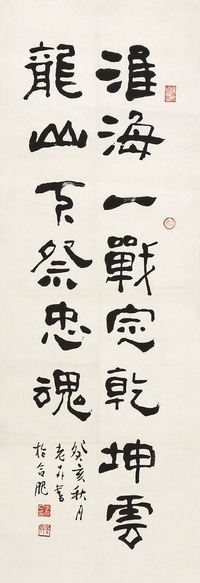 淮海一戰定乾坤雲
龍山下祭忠魂
癸亥秋月
老弁書
於合肥